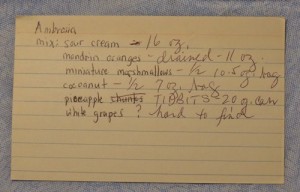 Ambrosia
mix: sour cream - 16 oz.
mandrin oranges - drained - 11 oz.
miniature marshmallows - 1/2 10.5 oz. bag
cocoanut - 1/2 7 oz. bag
pineapple chunks TIDBITS - 20 oz. can
white grapes ? hard to find